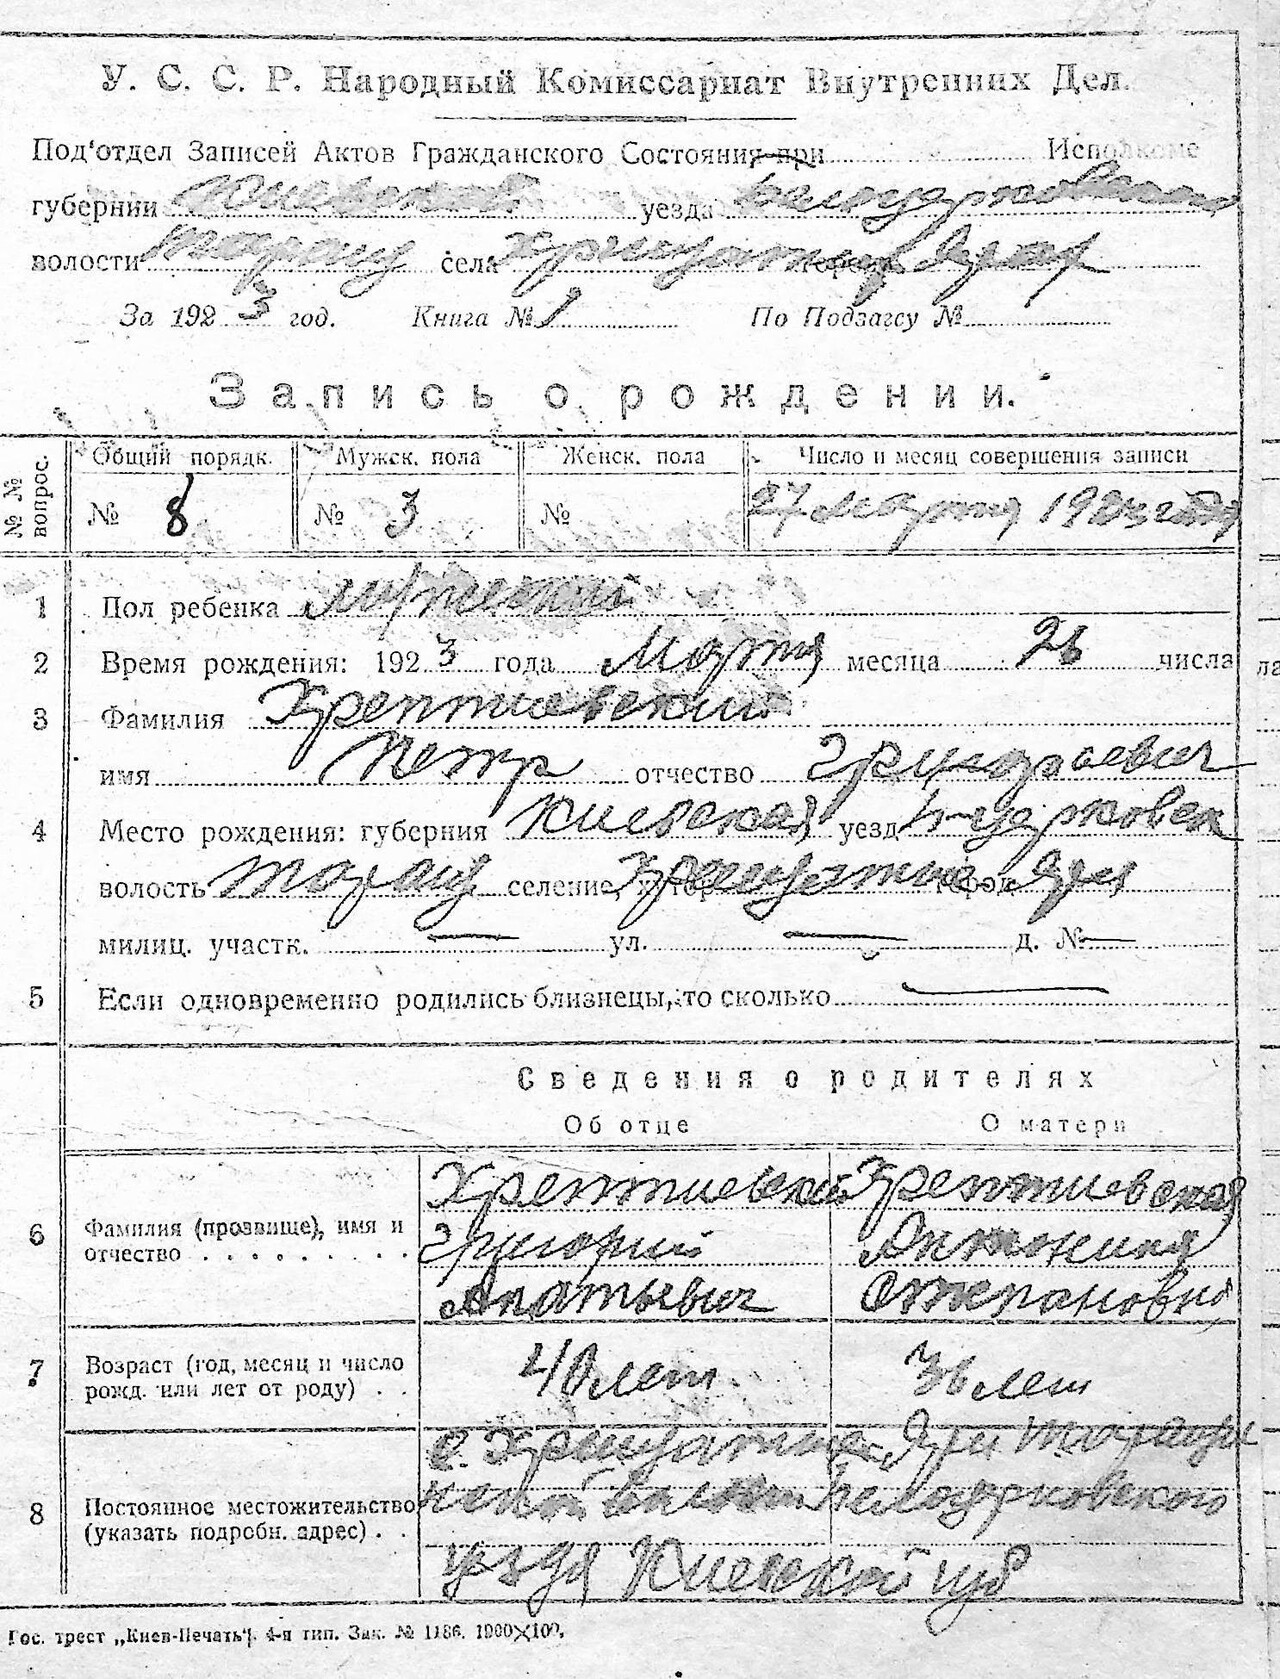 У. С. С. Р. Народный Комиссариат Внутренних Дел.
Под'отдел Записей Актов Гражданского Состояния при Исполкоме
губернии Киевской уезда Белоцерковского
волости Таращ села Хрищатые Яры
За 1923 год. Книга № 1 По Подзагсу №
Запись о рождении.
№ № вопрос. Общий порядк. Мужск. пола Женск. пола Число и месяц совершения записи
№ 8 № 3 № 27 марта 1923 года
1 Пол ребенка мужской
2 Время рождения: 1923 года Марта месяца 26 числа
3 Фамилия Хрептиевский
имя Петр отчество Григорьевич
4 Место рождения: губерния Киевская уезд Б-церковск
волость Таращ селение, хутор Хрищатые город Яры
милиц. участк. — ул. — д. № —
5 Если одновременно родились близнецы, то сколько —
Сведения о родителях
Об отце О матери
6 Фамилия (прозвище), имя и отчество . . . . . . . . .
Хрептиевский Хрептиевская
Григорий Антонина
Степановна
7 Возраст (год, месяц и число рожд. или лет от роду) . .
40 лет 36 лет
8 Постоянное местожительство (указать подробн. адрес) . .
с. Хрищатые Яры
Белоцерковского
уезда Киевской губ
Гос. трест „Киев-Печать“. 4-я тип. Зак. № 1186. 1000×100.